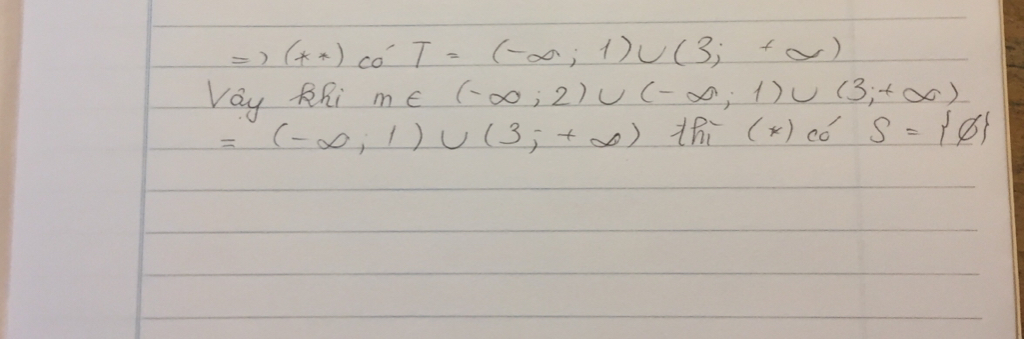 => (**) có T = (-∞; 1) ∪ (3; +∞)
Vậy khi m ∈ (-∞; 2) ∪ (-∞; 1) ∪ (3; +∞)
= (-∞; 1) ∪ (3; +∞) thì (*) có S = {∅}